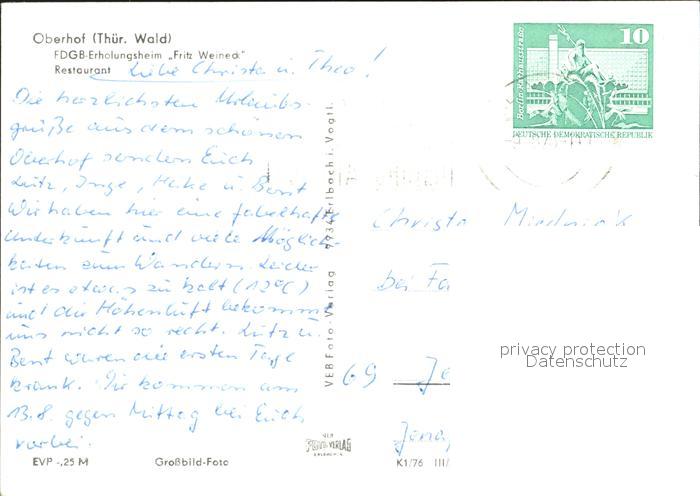 Oberhof (Thür. Wald)
FDGB-Erholungsheim „Fritz Weineck"
Restaurant
Liebe Christa u. Theo!
Die herzlichsten Urlaubs-
grüße aus dem schönen
Oberhof senden Euch
Lutz, Inge, Heike u. Berit
Wir haben hier eine fabelhafte
Unterkunft und viele Möglich-
keiten zum Wandern. Leider
ist es etwas zu kalt (12°C)
und die Höhenluft bekommt
uns nicht so recht. Lutz u.
Berit waren die ersten Tage
krank. Wir kommen am
13.8. gegen Mittag bei Euch
vorbei.
EVP -,25 M
Großbild-Foto
VEB Foto-Verlag 9934 Erlbach i. Vogtl.
FOTO-VERLAG
ERLBACH
K1/76 III/
10
Berlin, Rathausstraße
DEUTSCHE DEMOKRATISCHE REPUBLIK
Christa
bei Fa
69 Je
privacy protection
Datenschutz